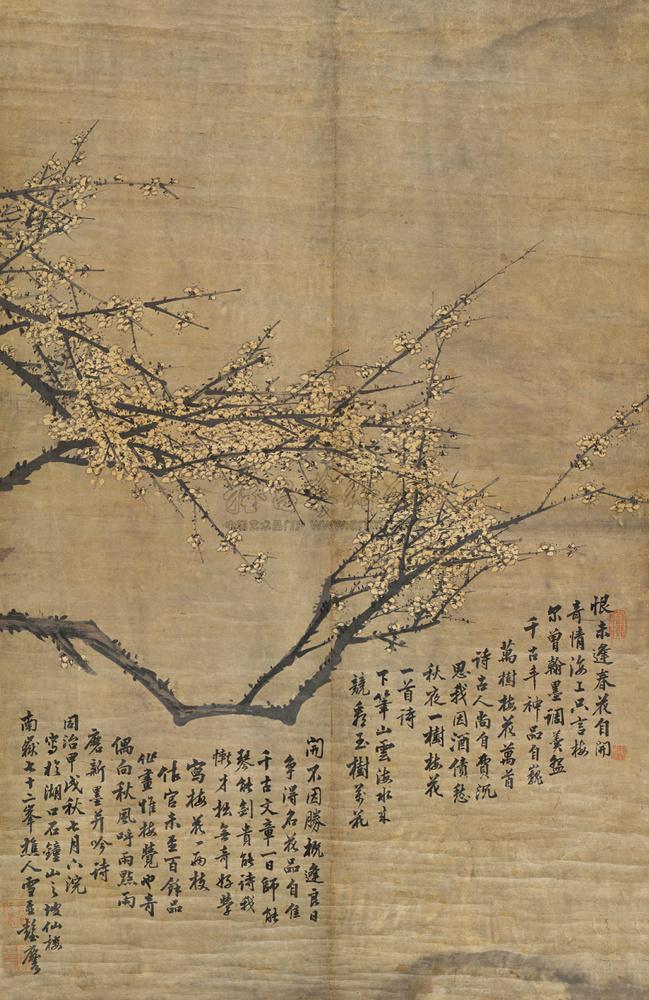 恨未逢春花自開
奇情海上只言梅
尔曾翰墨調羹盌
千古斗神品自巍
萬樹梅花萬首
詩古人尚自費沉
思我因酒債愁
秋夜一樹梅花
一首詩
下筆山雲海水来
競秀玉樹萬花
開不因勝概逢良日
争得名花品自佳
千古文章一日師能
琴能剑貴能詩我
慚才拙無奇好學
寫梅花一两枝
估官未至百餘品
作畫惟梅覺也奇
偶向秋風呼雨點雨
磨新墨并吟詩
同治甲戌秋七月六浣
寫於湖口石鐘山之坡仙樓
南嶽七十二峯樵人雪